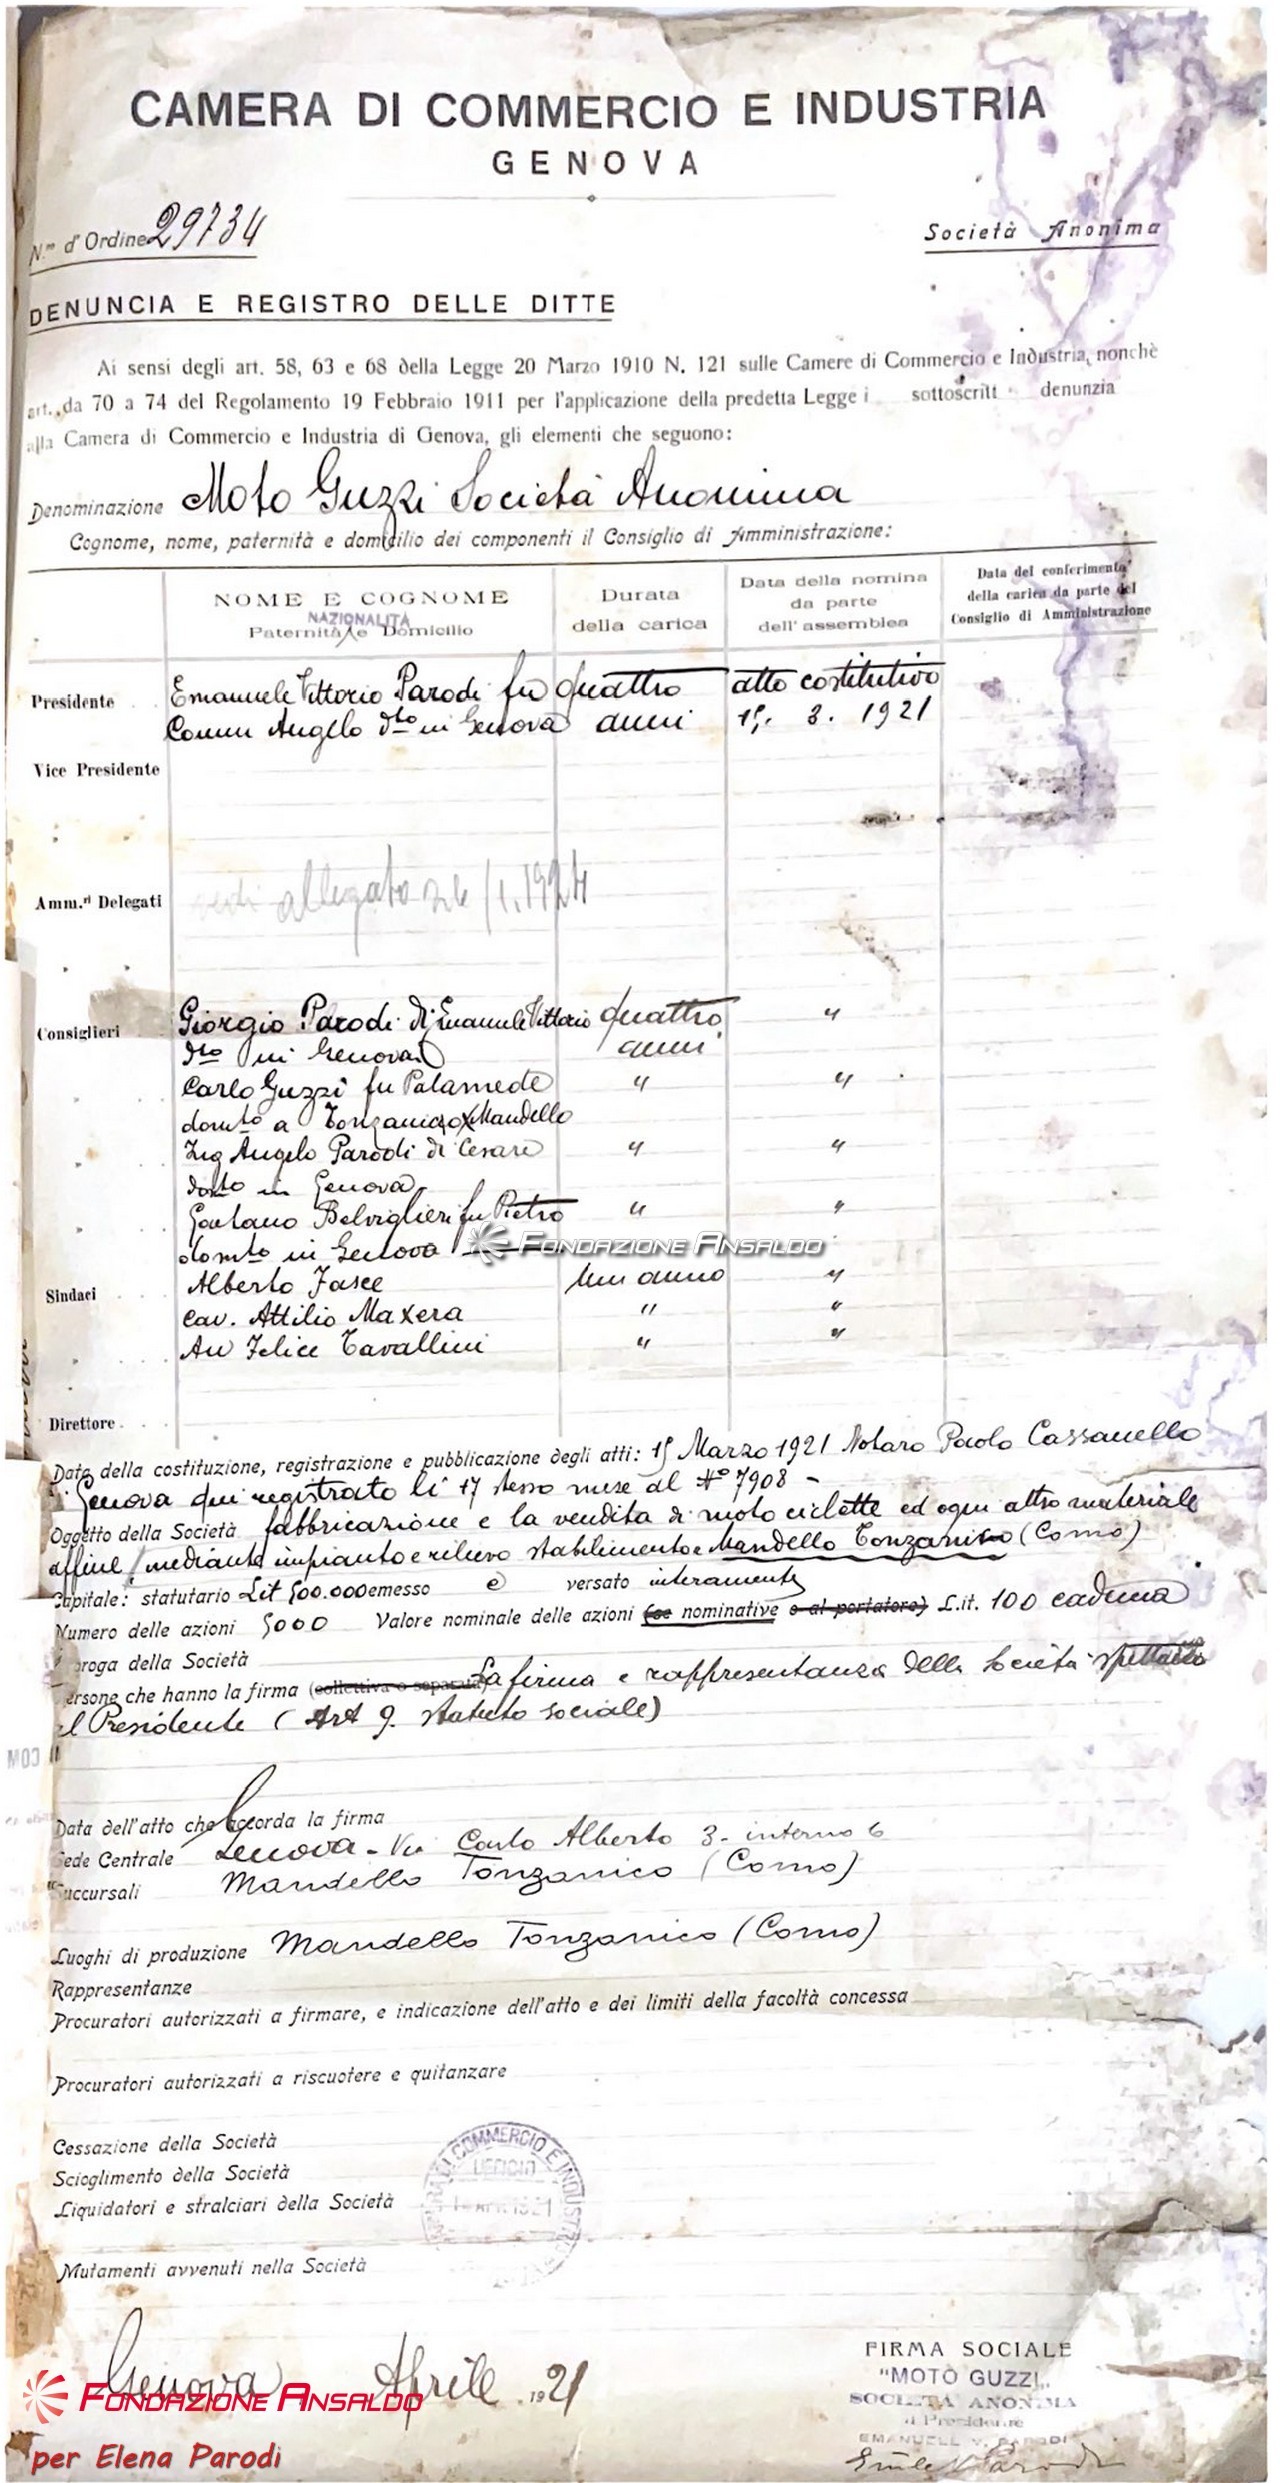 CAMERA DI COMMERCIO E INDUSTRIA
GENOVA
N.ro d'Ordine 29734
Società Anonima
DENUNCIA E REGISTRO DELLE DITTE
Ai sensi degli art. 58, 63 e 68 della Legge 20 Marzo 1910 N. 121 sulle Camere di Commercio e Industria, nonchè
art. da 70 a 74 del Regolamento 19 Febbraio 1911 per l'applicazione della predetta Legge i sottoscritt denunzia
alla Camera di Commercio e Industria di Genova, gli elementi che seguono:
Denominazione Moto Guzzi Società Anonima
Cognome, nome, paternità e domicilio dei componenti il Consiglio di Amministrazione:
NOME E COGNOME
NAZIONALITÀ
Paternità e Domicilio
Durata
della carica
Data della nomina
da parte
dell'assemblea
Data del conferimento
della carica da parte del
Consiglio di Amministrazione
Presidente Emanuele Vittorio Parodi fu quattro atto costitutivo
Comm Angelo dto in Genova anni 15. 3. 1921
Vice Presidente
"
Amm.ri Delegati vedi allegato 26/1.1924
" "
Consiglieri Giorgio Parodi di Emanuele Vittorio quattro "
dto in Genova anni
Carlo Guzzi fu Palamede " "
domto a Tonzanico x Mandello
Ing Angelo Parodi di Cesare " "
domto in Genova
Gaetano Belviglieri fu Pietro " "
domto in Genova
FONDAZIONE ANSALDO
Sindaci Alberto Fasce un anno "
cav. Attilio Maxera " "
" Av Felice Cavallini " "
Direttore
Data della costituzione, registrazione e pubblicazione degli atti: 15 Marzo 1921 Notaro Paolo Cassanello
Genova qui registrato li 17 stesso mese al No 7908 -
Oggetto della Società fabbricazione e la vendita di moto ciclette ed ogni altro materiale
affine / mediante impianto e rilievo stabilimento e Mandello Tonzanico (Como)
Capitale: statutario Lit 500.000 emesso e versato interamente
Numero delle azioni 5000 Valore nominale delle azioni (se nominative o al portatore) L.it. 100 caduna
Proroga della Società
Persone che hanno la firma (collettiva o separata) La firma e rappresentanza della Società spettano
al Presidente (Art 9. statuto sociale)
Data dell'atto che accorda la firma
Sede Centrale Genova - Via Carlo Alberto 3 - interno 6
Succursali Mandello Tonzanico (Como)
Luoghi di produzione Mandello Tonzanico (Como)
Rappresentanze
Procuratori autorizzati a firmare, e indicazione dell'atto e dei limiti della facoltà concessa
Procuratori autorizzati a riscuotere e quitanzare
Cessazione della Società
Scioglimento della Società
Liquidatori e stralciari della Società
COMMERCIO E INDUSTR
UFFICIO
APR. 1921
Mutamenti avvenuti nella Società
Genova Aprile 1921
FIRMA SOCIALE
"MOTO GUZZI"
SOCIETÀ ANONIMA
il Presidente
EMANUELE V. PARODI
Em.le V Parodi
FONDAZIONE ANSALDO
per Elena Parodi